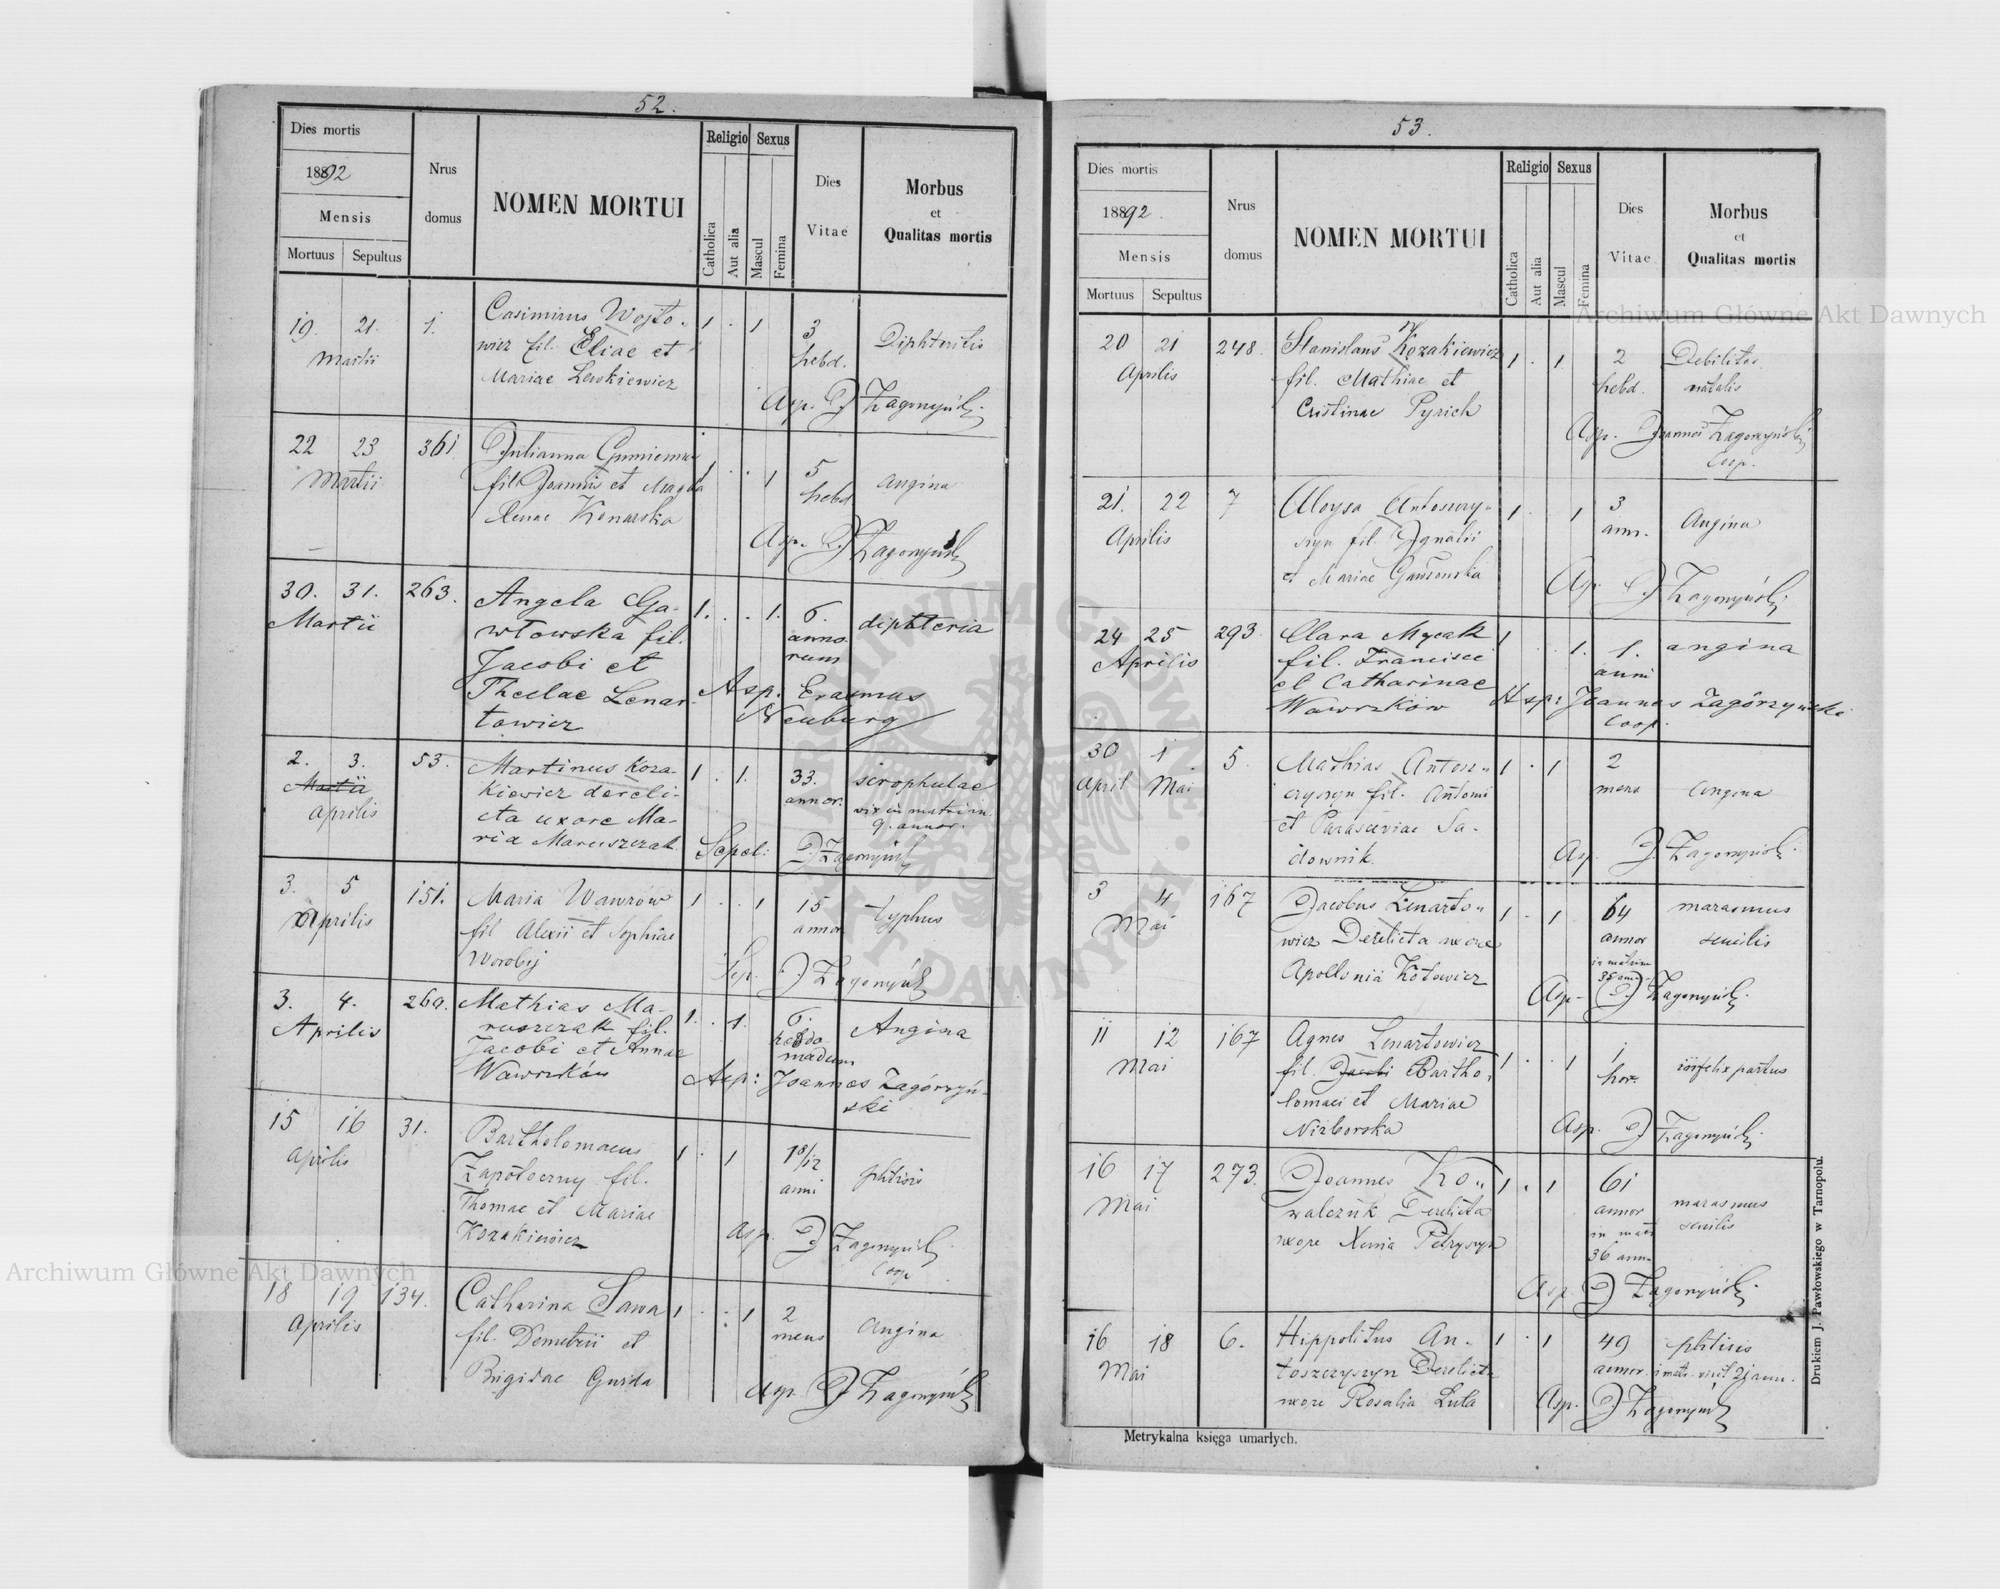 52.
Dies mortis
1892
Mensis
Mortuus Sepultus
Nrus domus
NOMEN MORTUI
Religio
Catholica
Aut alia
Sexus
Mascul
Femina
Dies Vitae
Morbus
et
Qualitas mortis
19. 21. 1. Casimirus Wojto- 1 . 1 3 Diphteritis
Martii wicz fil. Eliae et hebd.
Mariae Lewkiewicz
Asp. J Zagórzyński
22 23 361 Julianna 1 . . 1 5 angina
Martii fil. Joannis et Magda hebd
lenae Konarska
Asp. J Zagórzyński
30. 31. 263. Angela Ga- 1. . . 1. 6. diphteria
Martii włowska fil. anno-
Jacobi et rum
Theclae Lenar- Asp. Erasmus
towicz Neuburg
2. 3. 53. Martinus Koza- 1 . 1. 33. scrophulae
Martii kiewicz dereli- annor. vix in matrim.
Aprilis cta uxore Ma- 9. annor.
ria Maruszczak Sepel: J Zagórzyński
3. 5 151. Maria Wawrów 1 . . 1 15 typhus
Aprilis fil Alexii et Sophiae annor
Worobij
Sep. J Zagórzyński
3. 4. 269. Mathias Ma- 1. . 1. 6. Angina
Aprilis ruszczak fil. hebdo
Jacobi et Annae madum
Wawrzków Asp: Joannes Zagórzyń-
ski
15 16 31. Bartholomaeus 1 . 1 1 8/12 phtisis
Aprilis Zapotoczny fil. anni
Thomae et Mariae
Kozakiewicz Asp. J Zagórzyński
Coop
18 19 134. Catharina Sawa 1 . . 1 2 Angina
Aprilis fil. Demetrii et mens
Brigidae Gurda
Asp. J Zagórzyński
53.
Dies mortis
1892.
Mensis
Mortuus Sepultus
Nrus domus
NOMEN MORTUI
Religio
Catholica
Aut alia
Sexus
Mascul
Femina
Dies Vitae
Morbus
et
Qualitas mortis
20 21 248. Stanislaus Kozakiewicz 1 . 1 2 Debilitas
Aprilis fil. Mathiae et hebd. natalis
Cristinae Pyrich
Asp. Joannes Zagórzyński
Coop.
21. 22 7 Aloysa Antoszczy- 1 . . 1 3 Angina
Aprilis szyn fil. Ignatii ann.
et Mariae Gawrońska
Asp. J Zagórzyński
24 25 293. Clara Mycak 1 . . 1. 1. angina
Aprilis fil. Francisci anni
et Catharinae Asp: Joannes Zagórzyński
Wawrzków Coop.
30 1 5. Mathias Antosz- 1 . 1 2 Angina
April Mai czyszyn fil. Antoni mens
et Parasceviae Sa-
downik. Asp. J. Zagórzyński
3 4 167 Jacobus Lenarto- 1 . 1 64 marasmus
Mai wicz Derelicta uxore annor senilis
Apollonia Kotowicz in matrim
38 ann
Asp- J Zagórzyński
11 12 167 Agnes Lenartowicz 1 . . 1 1 infelix partus
Mai fil. Jacobi Bartho- hor.
lomaei et Mariae
Nizborska Asp. J Zagórzyński
16 17 273. Joannes Ko- 1 . 1 61 marasmus
Mai walczuk Derelicta annor senilis
uxore Xenia Petryszyn in matr
36 ann.
Asp J Zagórzyński
16 18 6. Hippolitus An- 1 . 1 49 phtisis
Mai toszczyszyn Derelicta annor. i matr. vixit 21 ann.
uxore Rosalia Luta Asp. J Zagórzyński
Metrykalna księga umarłych.
Drukiem J. Pawłowskiego w Tarnopolu.
Archiwum Główne Akt Dawnych
Archiwum Główne Akt Dawnych
ARCHIWUM GŁÓWNE AKT DAWNYCH